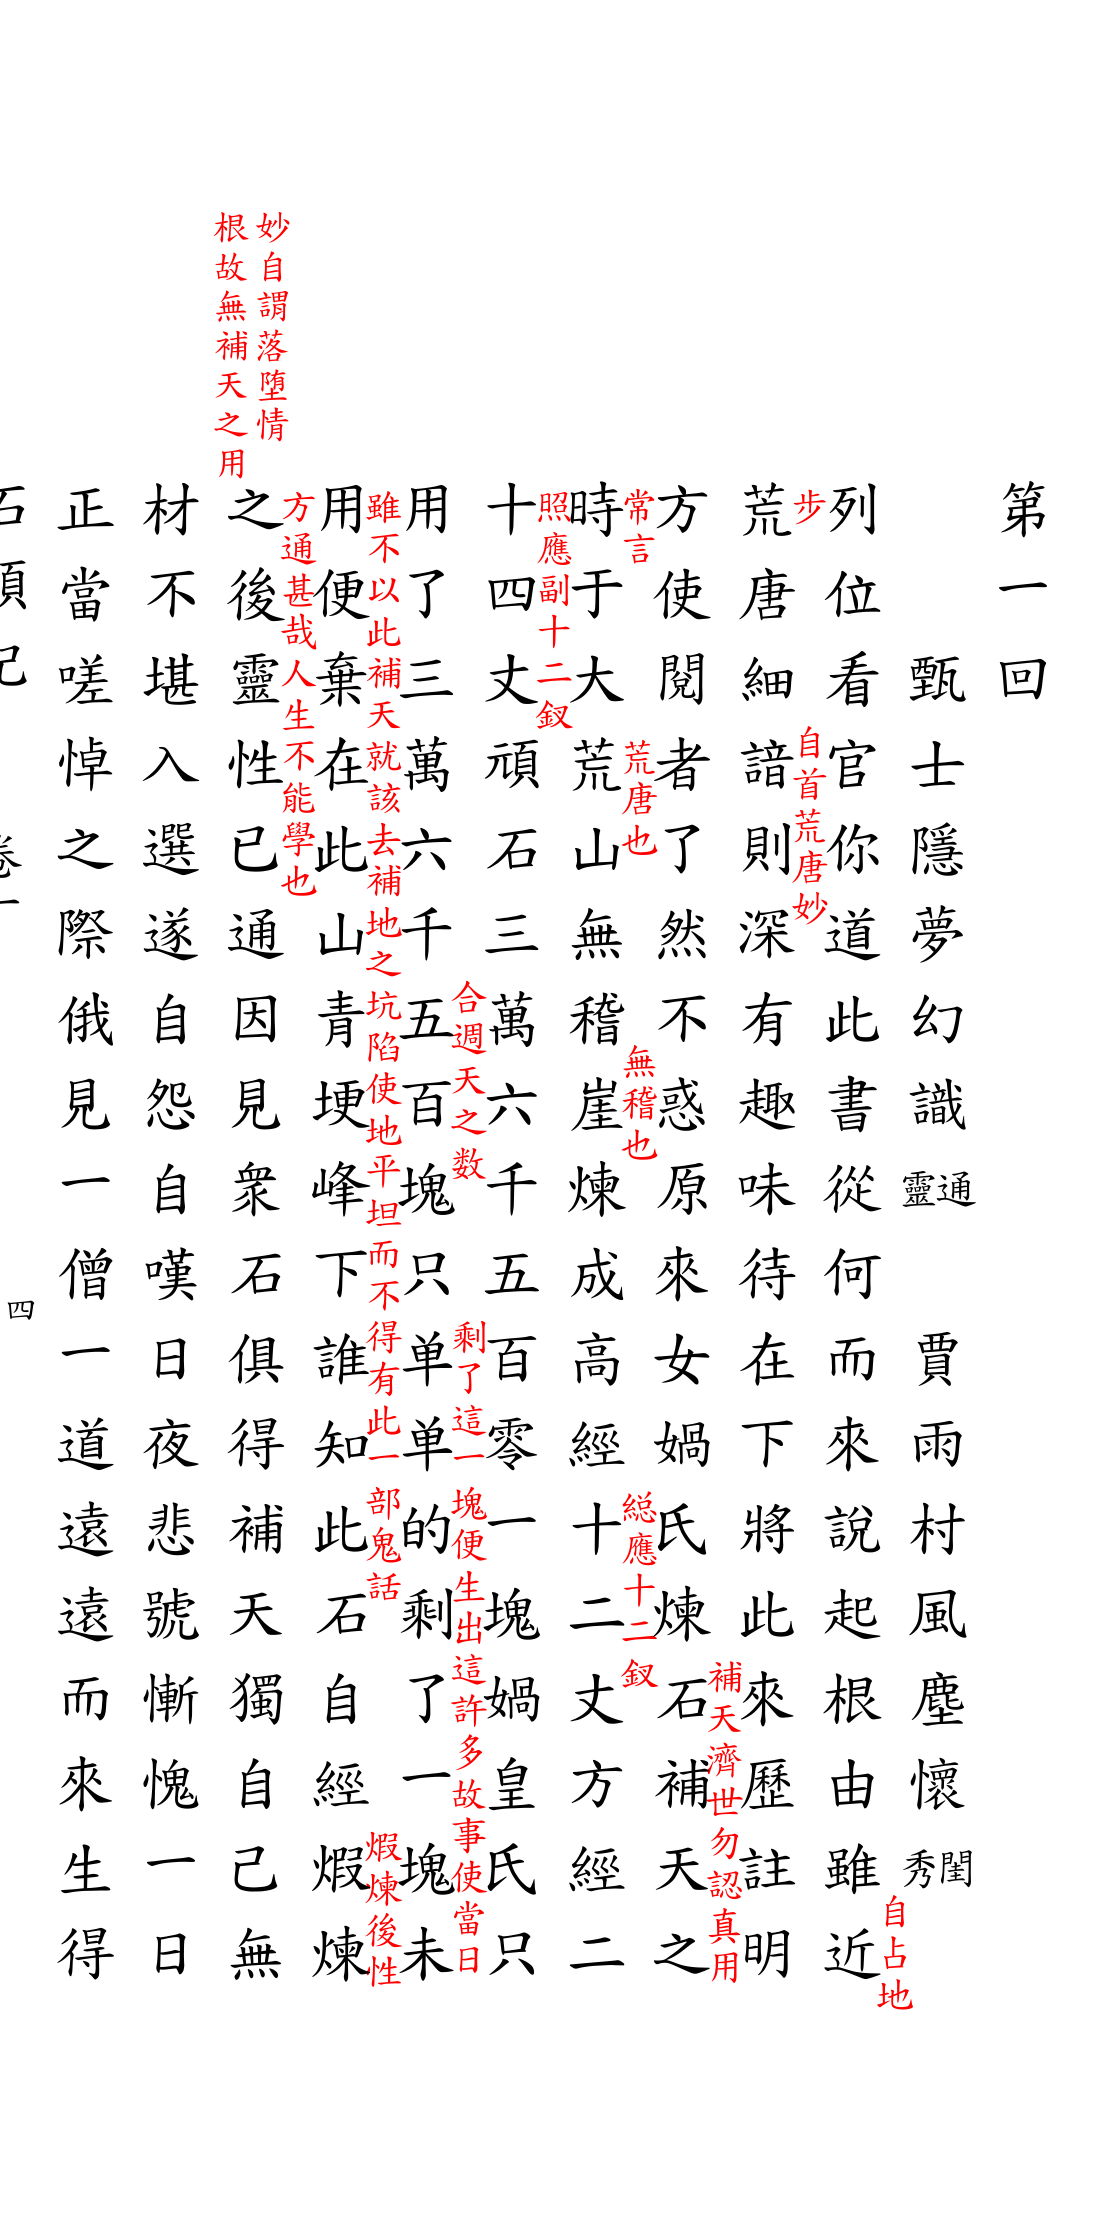 第一回
甄士隱夢幻識通靈　賈雨村風塵懷閨秀
自占地
列位看官你道此書從何而來說起根由雖近
步
自首荒唐妙
荒唐細諳則深有趣味待在下將此來歷註明
補天濟世勿認真用
方使閱者了然不惑原來女媧氏煉石補天之
常言
荒唐也
無稽也
総應十二釵
時于大荒山無稽崖煉成高經十二丈方經二
照應副十二釵
十四丈頑石三萬六千五百零一塊媧皇氏只
合週天之数
剩了這一塊便生出這許多故事使當日
用了三萬六千五百塊只单单的剩了一塊未
雖不以此補天就該去補地之坑陷使地平坦而不得有此一部鬼話
煆煉後性
用便棄在此山青埂峰下誰知此石自經煆煉
方通甚哉人生不能學也
妙自謂落堕情
根故無補天之用
之後靈性已通因見衆石俱得補天獨自己無
材不堪入選遂自怨自嘆日夜悲號慚愧一日
正當嗟悼之際俄見一僧一道遠遠而來生得
四